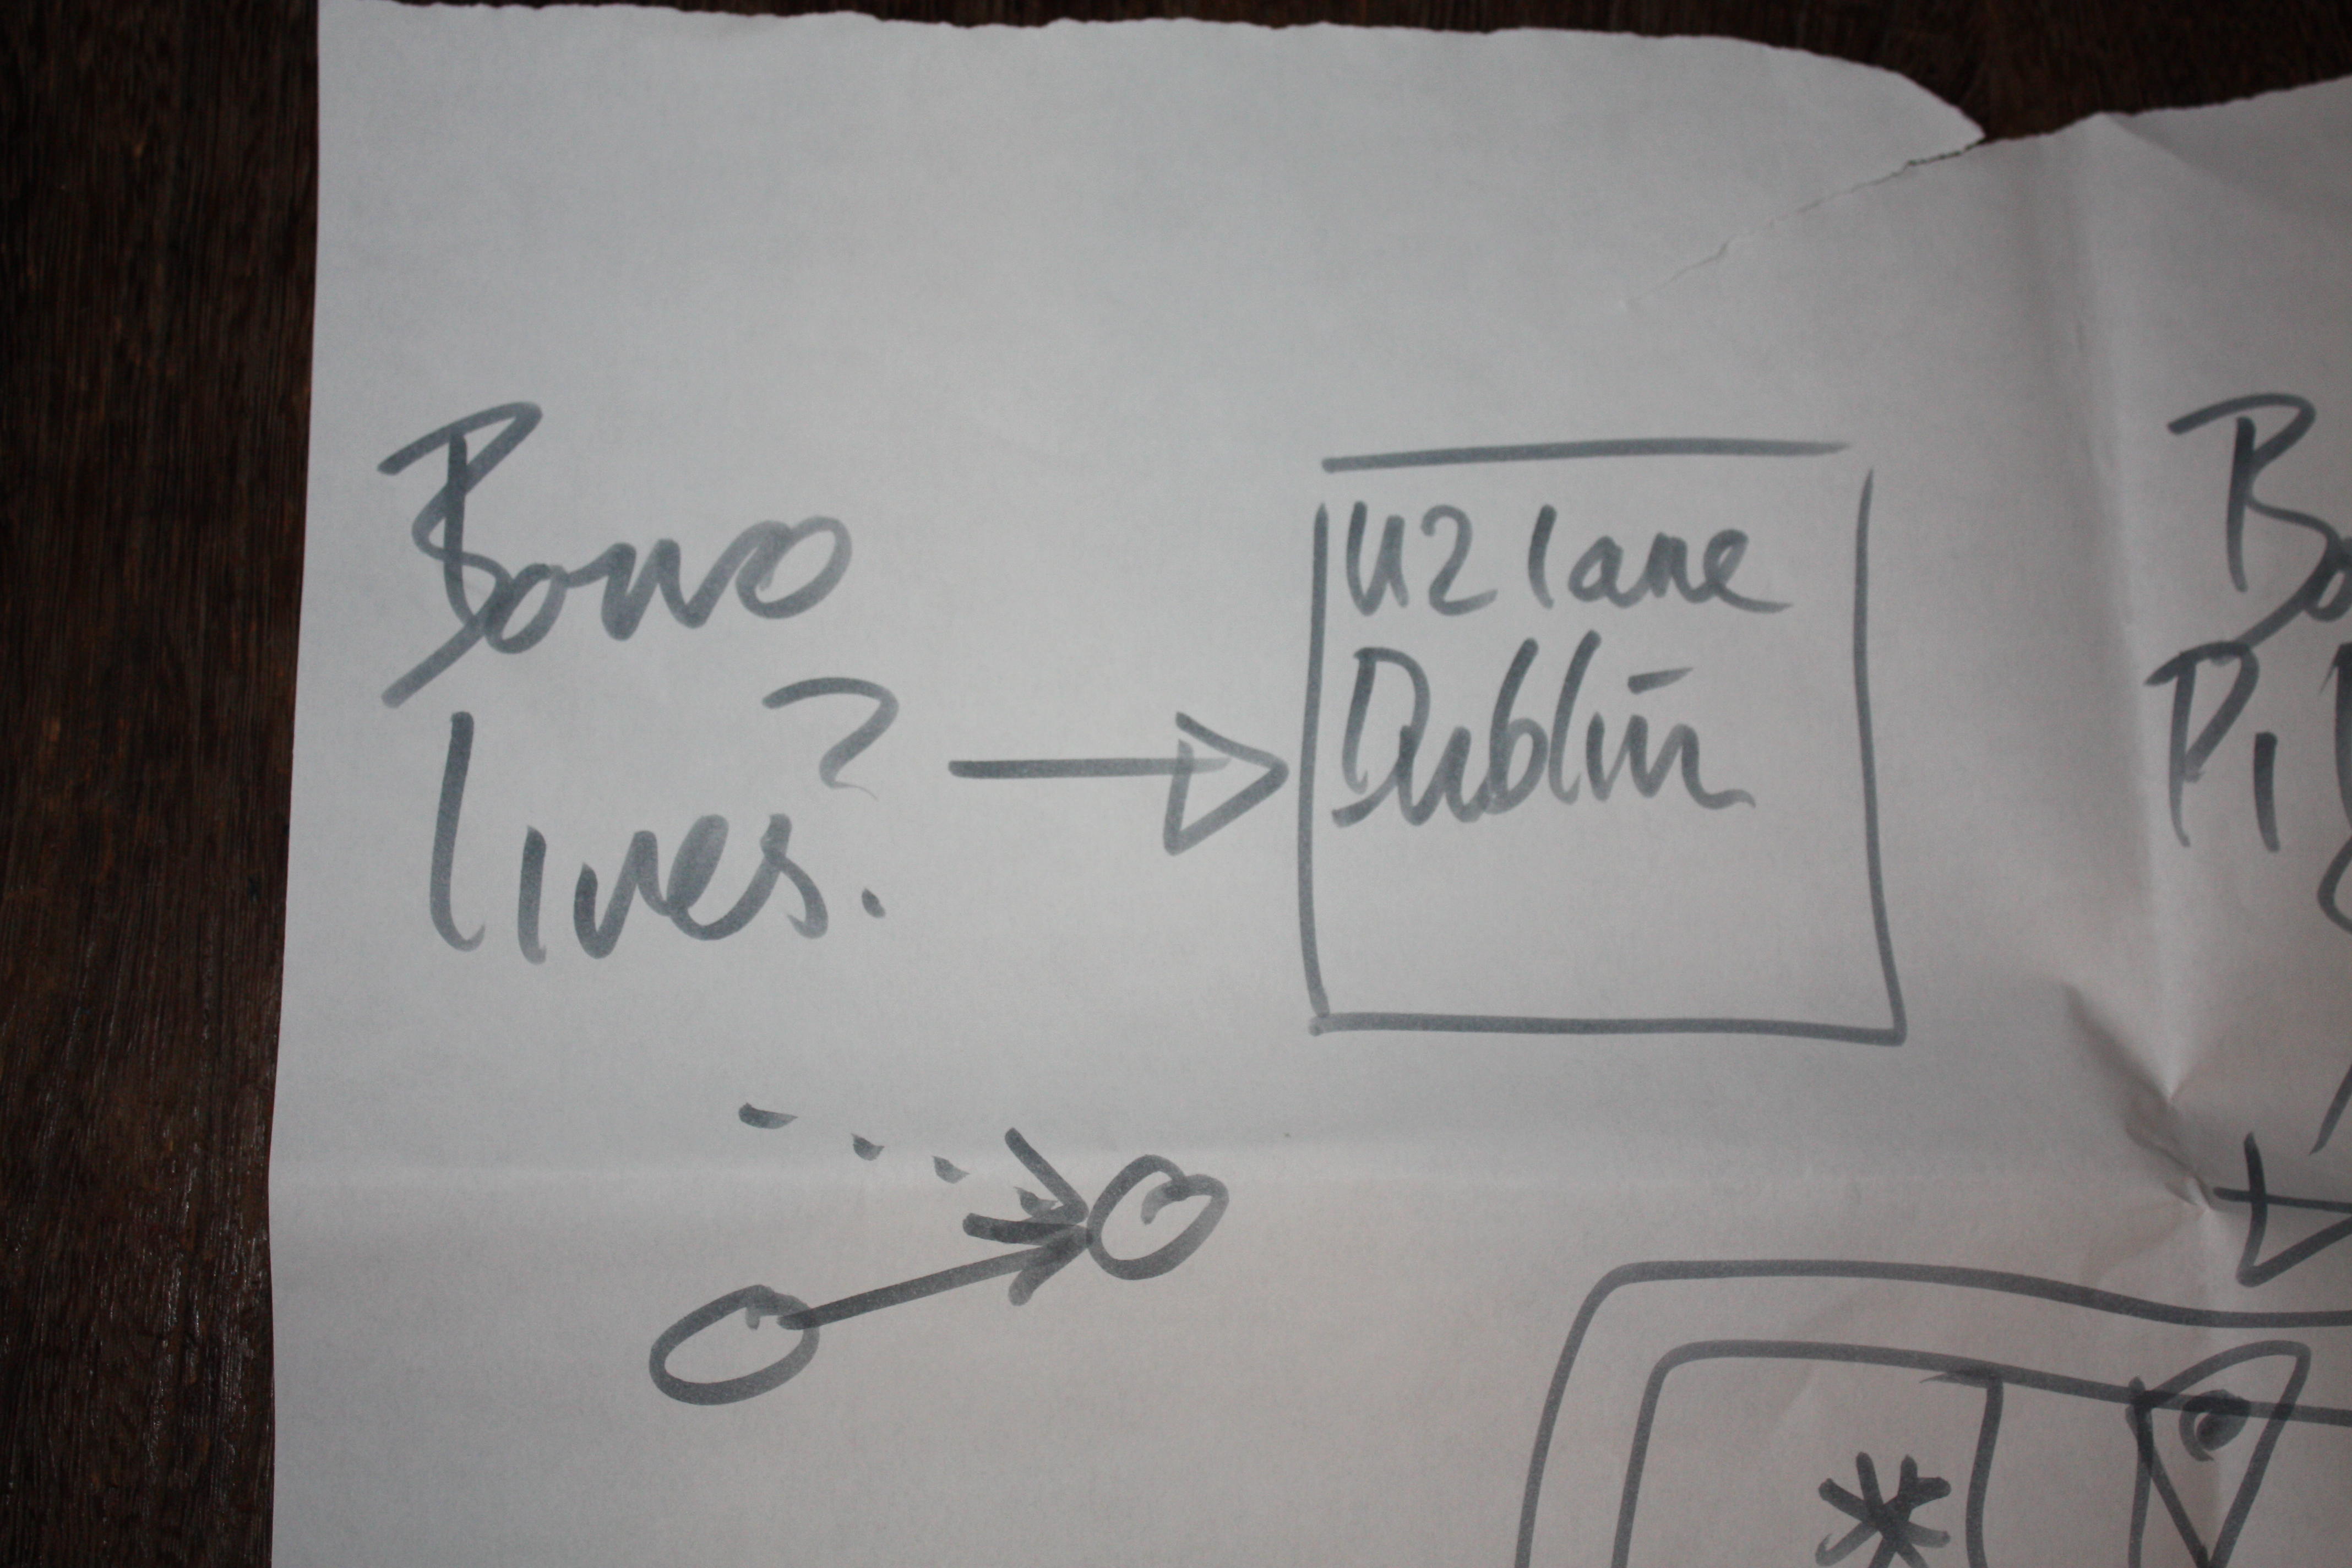 Bono
lives?
U2 lane
Dublin